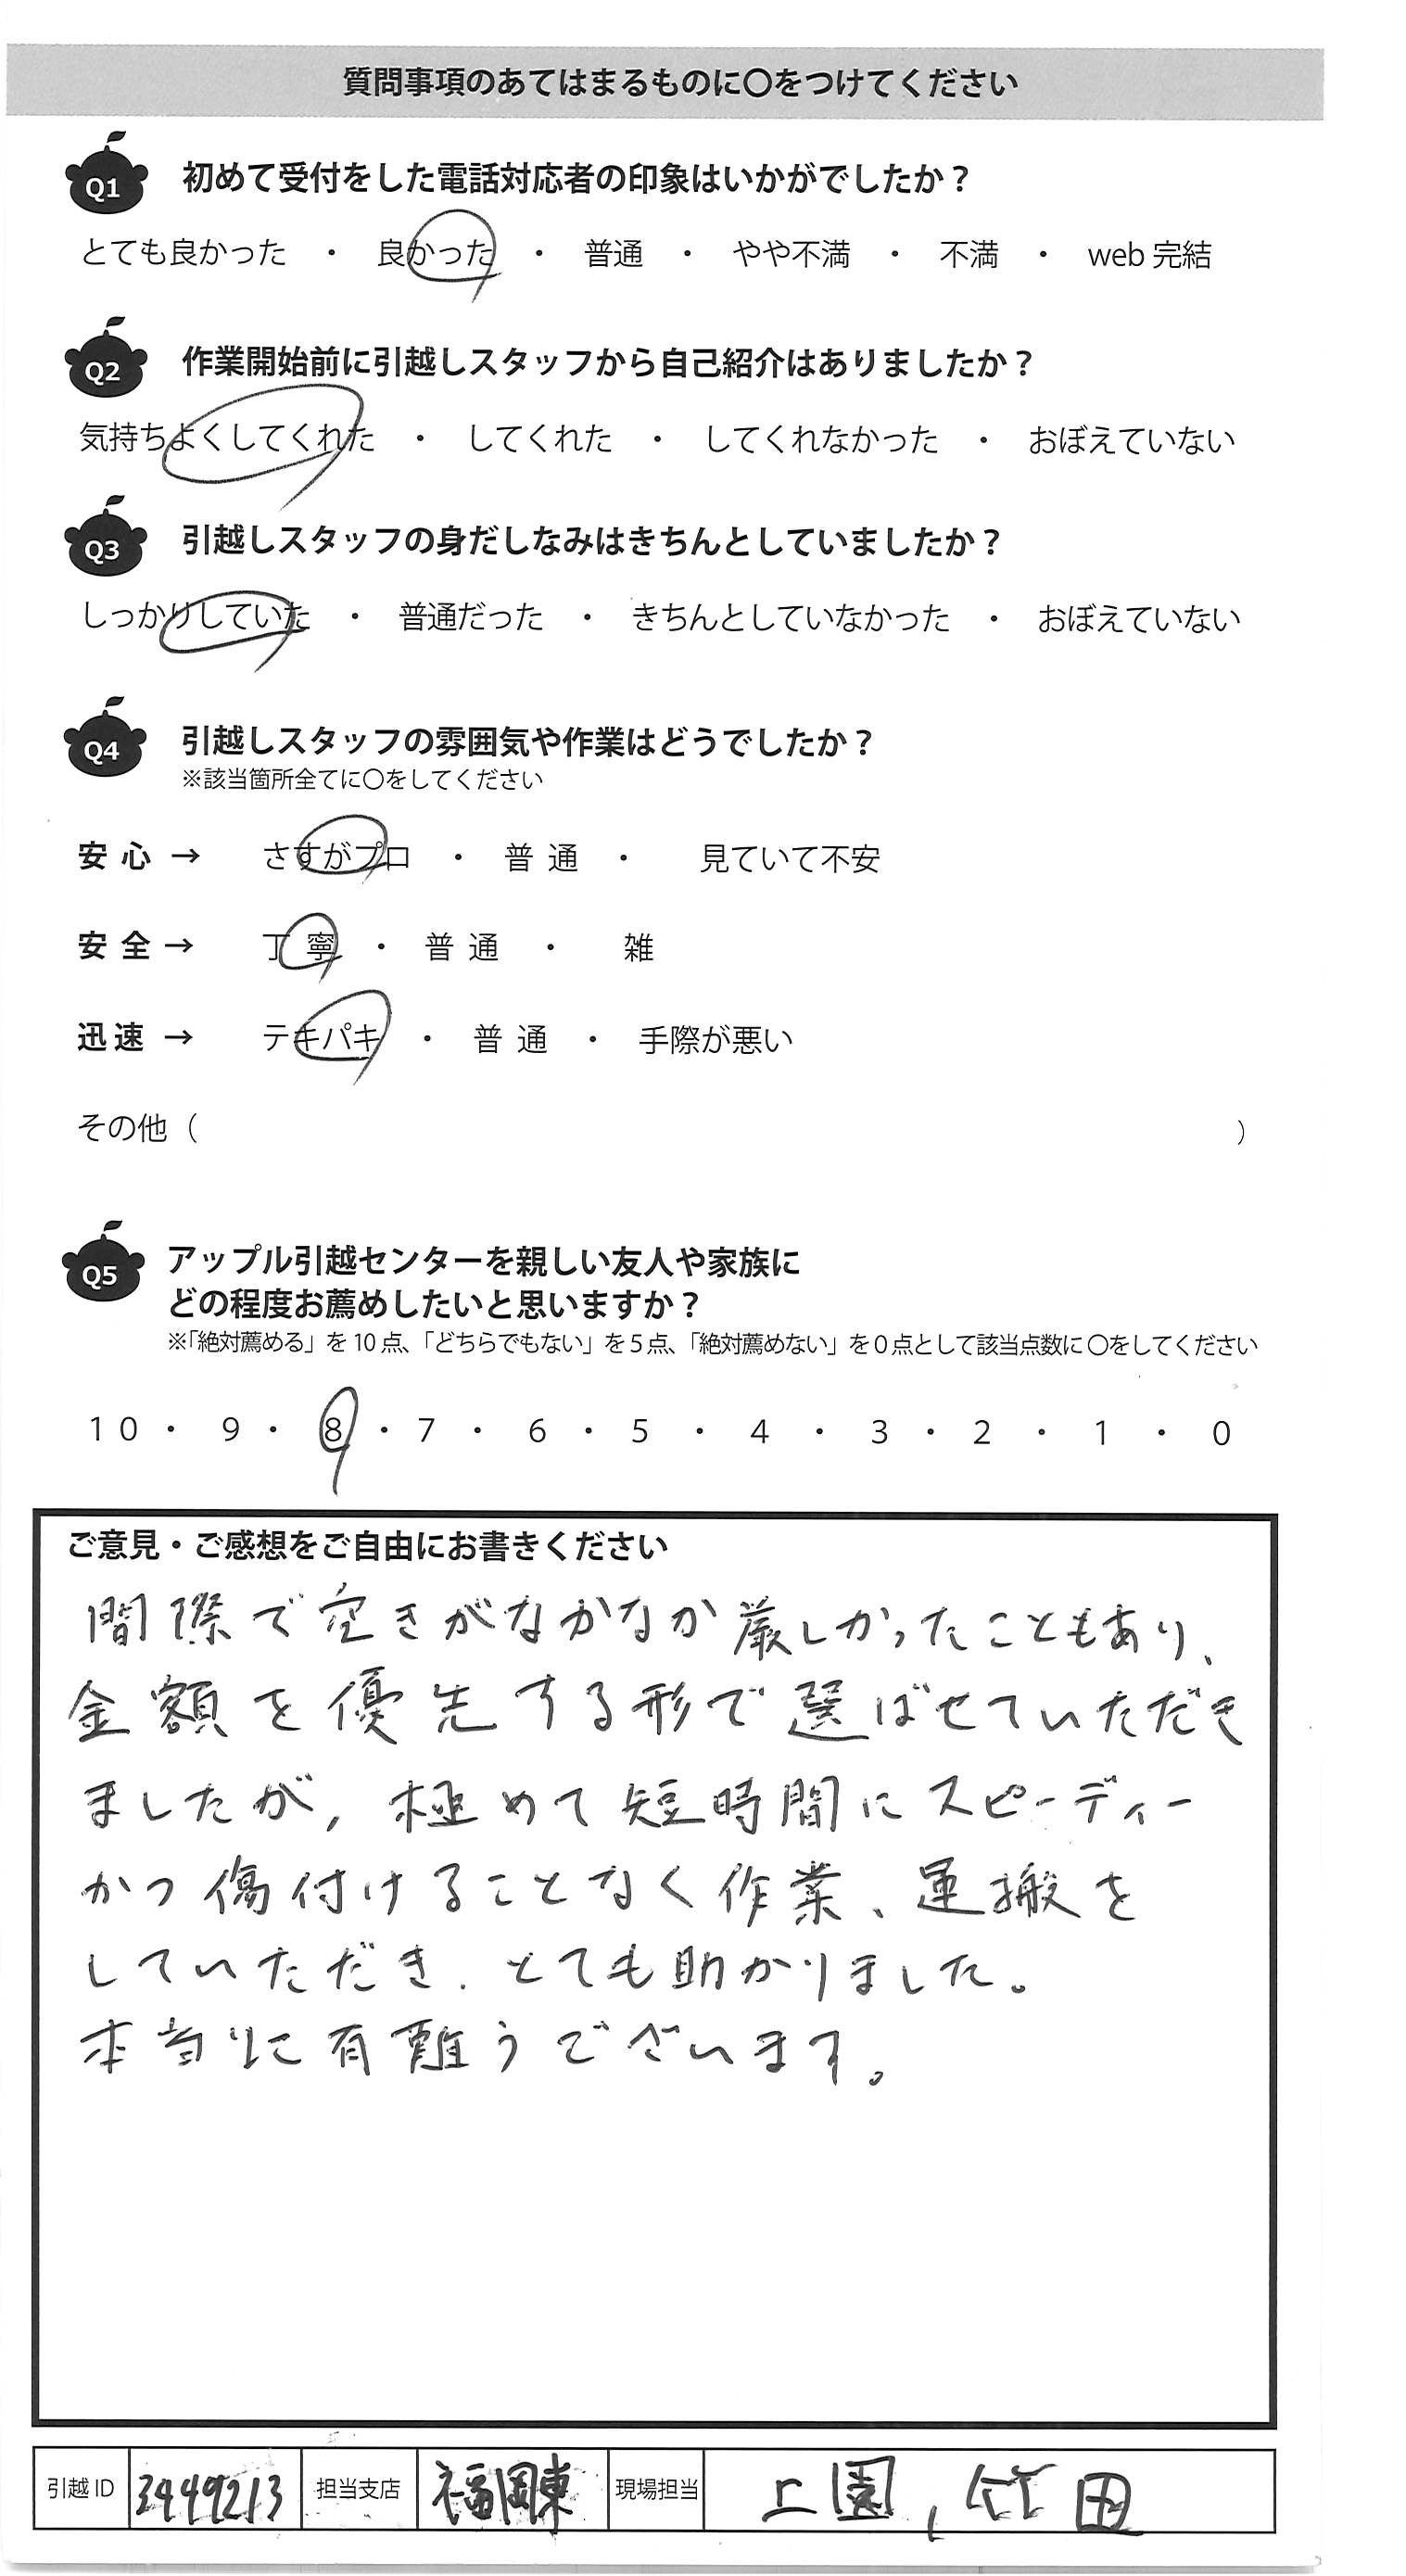 質問事項のあてはまるものに〇をつけてください
Q1 初めて受付をした電話対応者の印象はいかがでしたか？
とても良かった ・ 良かった ・ 普通 ・ やや不満 ・ 不満 ・ web 完結
Q2 作業開始前に引越しスタッフから自己紹介はありましたか？
気持ちよくしてくれた ・ してくれた ・ してくれなかった ・ おぼえていない
Q3 引越しスタッフの身だしなみはきちんとしていましたか？
しっかりしていた ・ 普通だった ・ きちんとしていなかった ・ おぼえていない
Q4 引越しスタッフの雰囲気や作業はどうでしたか？
※該当箇所全てに〇をしてください
安心 → さすがプロ ・ 普通 ・ 見ていて不安
安全 → 丁寧 ・ 普通 ・ 雑
迅速 → テキパキ ・ 普通 ・ 手際が悪い
その他（ ）
Q5 アップル引越センターを親しい友人や家族に
どの程度お薦めしたいと思いますか？
※「絶対薦める」を10点、「どちらでもない」を5点、「絶対薦めない」を0点として該当点数に〇をしてください
10 ・ 9 ・ 8 ・ 7 ・ 6 ・ 5 ・ 4 ・ 3 ・ 2 ・ 1 ・ 0
ご意見・ご感想をご自由にお書きください
間際で空きがなかなか厳しかったこともあり、
金額を優先する形で選ばせていただき
ましたが, 極めて短時間にスピーディー
かつ傷付けることなく作業、運搬を
していただき、とても助かりました。
本当に有難うございます。
引越ID 3449213 担当支店 福岡東 現場担当 上園, 竹田